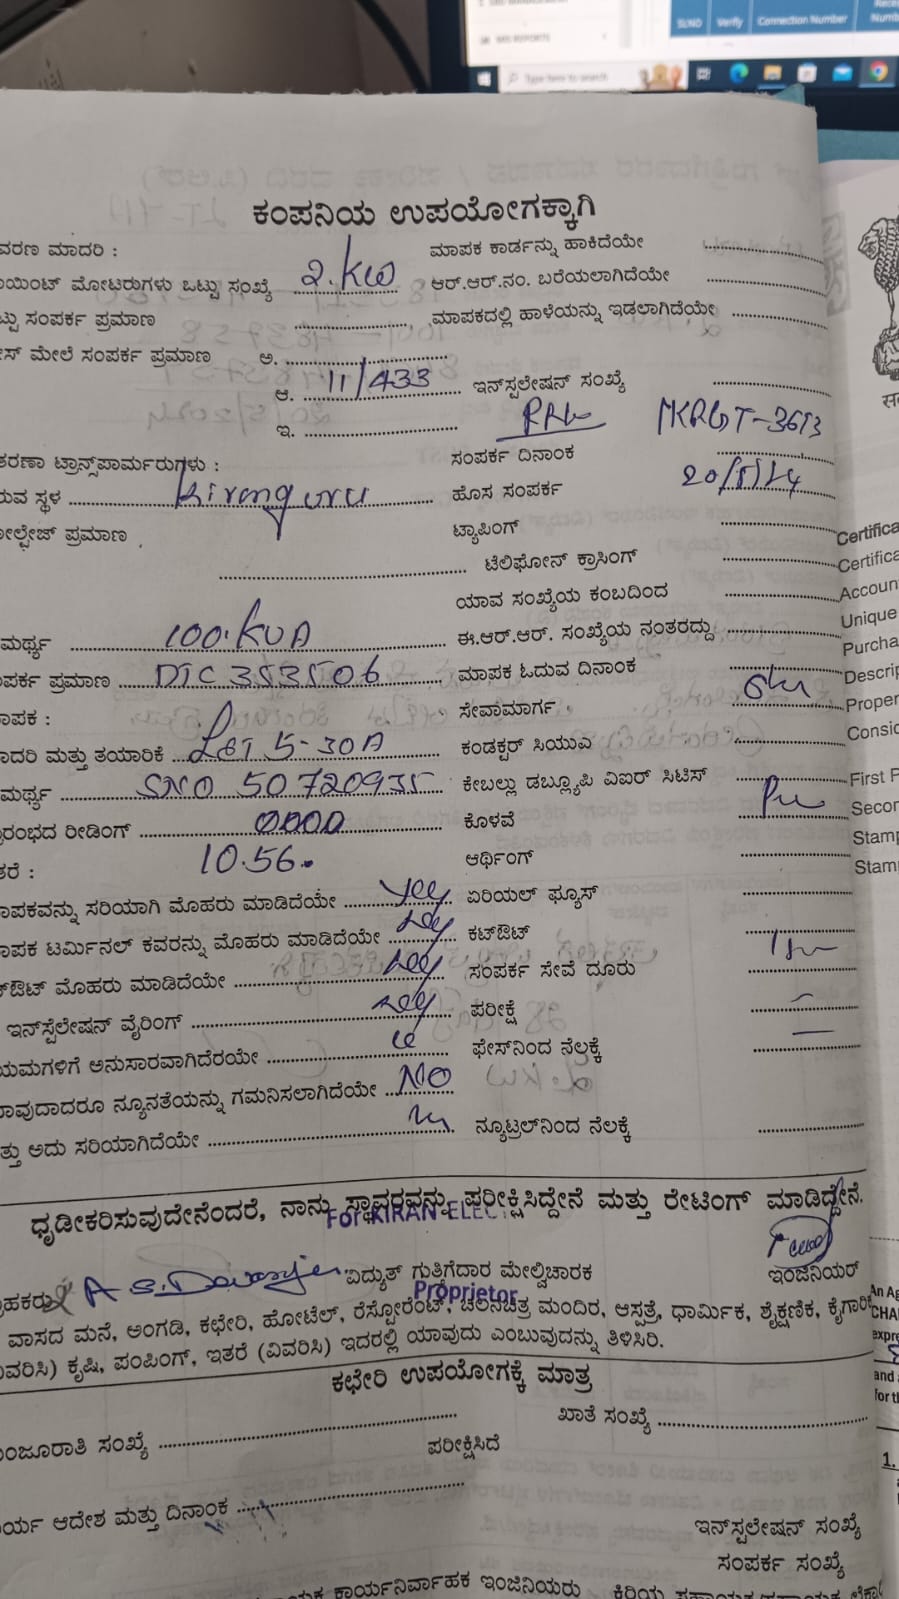 SLNO Verify Connection Number
Type here to search
ಕಂಪನಿಯ ಉಪಯೋಗಕ್ಕಾಗಿ
ವರಣ ಮಾದರಿ : ಮಾಪಕ ಕಾರ್ಡನ್ನು ಹಾಕಿದೆಯೇ
ಯಿಂಟ್ ಮೋಟರುಗಳು ಒಟ್ಟು ಸಂಖ್ಯೆ 2.KW ಆರ್.ಆರ್.ನಂ. ಬರೆಯಲಾಗಿದೆಯೇ
ಟ್ಟು ಸಂಪರ್ಕ ಪ್ರಮಾಣ ಮಾಪಕದಲ್ಲಿ ಹಾಳೆಯನ್ನು ಇಡಲಾಗಿದೆಯೇ
ಸ್ ಮೇಲೆ ಸಂಪರ್ಕ ಪ್ರಮಾಣ ಅ.
ಆ. 11/433 ಇನ್‌ಸ್ಟಲೇಷನ್ ಸಂಖ್ಯೆ
ಇ. MKRGT-3613
ತರಣಾ ಟ್ರಾನ್ಸ್‌ಪಾರ್ಮರುಗಳು : ಸಂಪರ್ಕ ದಿನಾಂಕ
ರುವ ಸ್ಥಳ Kironguru ಹೊಸ ಸಂಪರ್ಕ
ೋಲ್ಟೇಜ್ ಪ್ರಮಾಣ ಟ್ಯಾಪಿಂಗ್
ಟೆಲಿಫೋನ್ ಕ್ರಾಸಿಂಗ್
ಯಾವ ಸಂಖ್ಯೆಯ ಕಂಬದಿಂದ
ಮರ್ಥ್ಯ 100.KVA ಈ.ಆರ್.ಆರ್. ಸಂಖ್ಯೆಯ ನಂತರದ್ದು
ಪರ್ಕ ಪ್ರಮಾಣ DTC 353506 ಮಾಪಕ ಓದುವ ದಿನಾಂಕ
ಾಪಕ : ಸೇವಾಮಾರ್ಗ
ಾದರಿ ಮತ್ತು ತಯಾರಿಕೆ L&T 5-30A ಕಂಡಕ್ಟರ್ ಸಿಯುವಿ
ಮರ್ಥ್ಯ SNO 50720935 ಕೇಬಲ್ಲು ಡಬ್ಲ್ಯೂಪಿ ವಿಐಆರ್ ಸಿಟಿಸ್
ರಂಭದ ರೀಡಿಂಗ್ 0000 ಕೊಳವೆ
ತರೆ : 10.56 ಆರ್ಥಿಂಗ್
ಾಪಕವನ್ನು ಸರಿಯಾಗಿ ಮೊಹರು ಮಾಡಿದೆಯೇ Yes ಏರಿಯಲ್ ಫ್ಯೂಸ್
ಾಪಕ ಟರ್ಮಿನಲ್ ಕವರನ್ನು ಮೊಹರು ಮಾಡಿದೆಯೇ ಕಟ್‌ಔಟ್
ಟ್‌ಔಟ್ ಮೊಹರು ಮಾಡಿದೆಯೇ ಸಂಪರ್ಕ ಸೇವೆ ದೂರು
ಇನ್‌ಸ್ಟೆಲೇಷನ್ ವೈರಿಂಗ್ ಪರೀಕ್ಷೆ
ಯಮಗಳಿಗೆ ಅನುಸಾರವಾಗಿದೆರಯೇ ಫೇಸ್‌ನಿಂದ ನೆಲ್ರಕ್ಕೆ
ಾವುದಾದರೂ ನ್ಯೂನತೆಯನ್ನು ಗಮನಿಸಲಾಗಿದೆಯೇ NO
ತ್ತು ಅದು ಸರಿಯಾಗಿದೆಯೇ ನ್ಯೂಟ್ರಲ್‌ನಿಂದ ನೆಲಕ್ಕೆ
ಧೃಡೀಕರಿಸುವುದೇನೆಂದರೆ, ನಾನು ಸ್ಥಾವರವನ್ನು ಪರೀಕ್ಷಿಸಿದ್ದೇನೆ ಮತ್ತು ರೇಟಿಂಗ್ ಮಾಡಿದ್ದೇನೆ.
For KIRAN ELEC
ರಾಹಕರು ವಿದ್ಯುತ್ ಗುತ್ತಿಗೆದಾರ ಮೇಲ್ವಿಚಾರಕ ಇಂಜಿನಿಯರ್
Proprietor
ವಾಸದ ಮನೆ, ಅಂಗಡಿ, ಕಛೇರಿ, ಹೋಟೆಲ್, ರೆಸ್ಟೋರೆಂಟ್, ಚಲನಚಿತ್ರ ಮಂದಿರ, ಆಸ್ಪತ್ರೆ, ಧಾರ್ಮಿಕ, ಶೈಕ್ಷಣಿಕ, ಕೈಗಾರಿಕೆ
ವರಿಸಿ) ಕೃಷಿ, ಪಂಪಿಂಗ್, ಇತರೆ (ವಿವರಿಸಿ) ಇದರಲ್ಲಿ ಯಾವುದು ಎಂಬುವುದನ್ನು ತಿಳಿಸಿರಿ.
ಕಛೇರಿ ಉಪಯೋಗಕ್ಕೆ ಮಾತ್ರ
ಂಜೂರಾತಿ ಸಂಖ್ಯೆ ಖಾತೆ ಸಂಖ್ಯೆ
ಪರೀಕ್ಷಿಸಿದೆ
ರ್ಯ ಆದೇಶ ಮತ್ತು ದಿನಾಂಕ
ಇನ್‌ಸ್ಟಲೇಷನ್ ಸಂಖ್ಯೆ
ಸಂಪರ್ಕ ಸಂಖ್ಯೆ
ಕಾರ್ಯನಿರ್ವಾಹಕ ಇಂಜಿನಿಯರು
Certifica
Certifica
Accoun
Unique
Purcha
Descrip
Proper
Consid
First P
Secon
Stamp
Stam
An Ag
CHA
expr
and
for th
1.